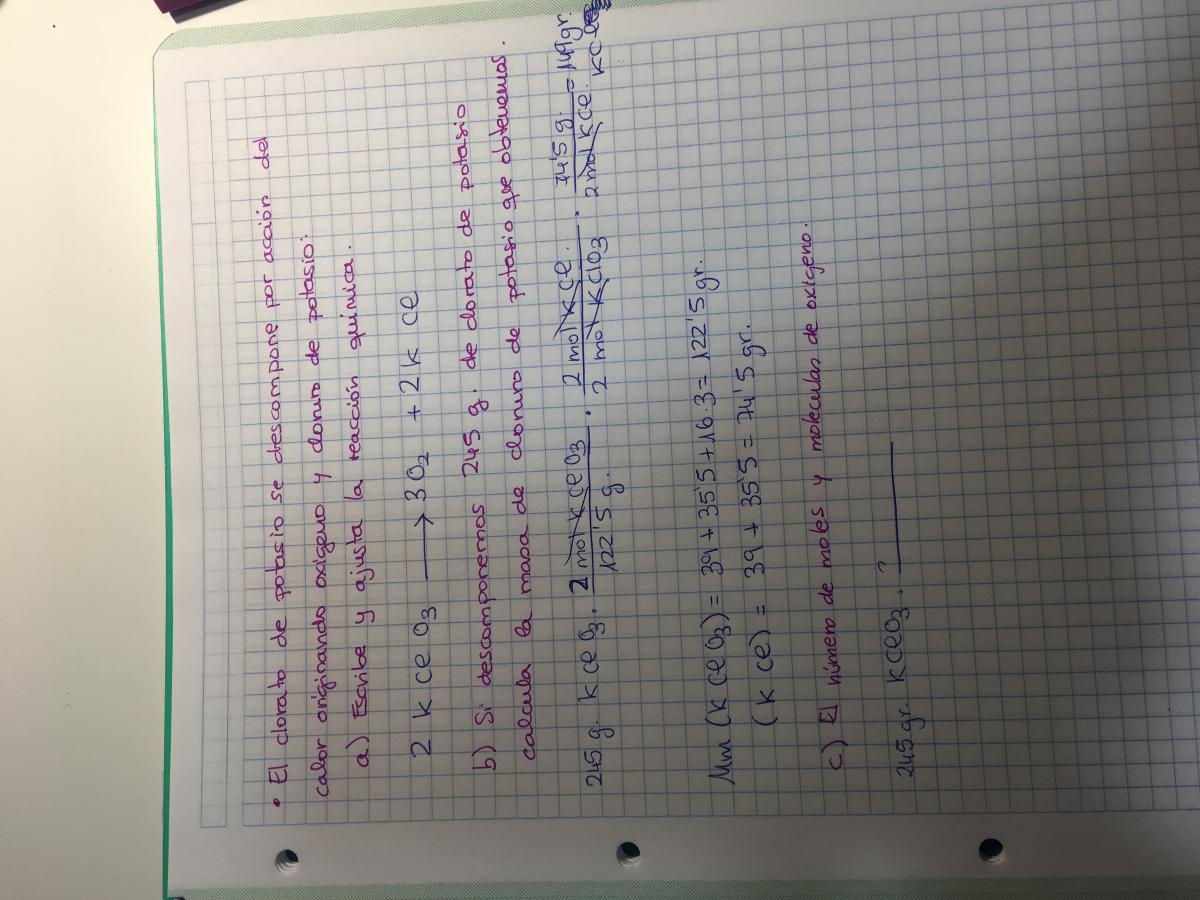 • El clorato de potasio se descompone por acción del
calor originando oxígeno y cloruro de potasio:
a) Escribe y ajusta la reacción química.
2 K Cl O3 ⟶ 3 O2 + 2 K Cl
b) Si descomponemos 245 g. de clorato de potasio
calcula la masa de cloruro de potasio que obtenemos.
245 g. K Cl O3 . 2 mol K Cl O3 / 122'5 g. . 2 mol K Cl. / 2 mol K ClO3 . 74'5 g. / 2 mol K Cl. = 149 gr. K Cl
Mm (K Cl O3) = 39 + 35'5 + 16.3 = 122'5 gr.
(K Cl) = 39 + 35'5 = 74'5 gr.
c) El número de moles y moleculas de oxígeno.
245 gr. K Cl O3 . ?